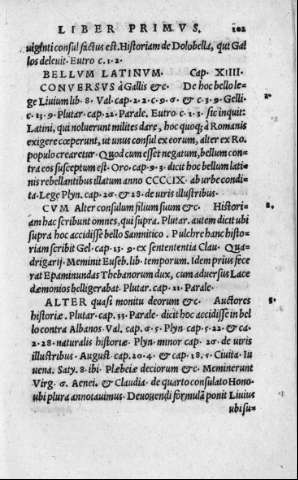 LIBER PRIMVS. 102
uiginti consul factus est. Historiam de Dolobella, qui Gal
los deleuit. Eutro c. 1. 2.
BELLVM LATINVM. Cap. XIIII.
CONVERSVS à Gallis &c. De hoc bello le-
ge Liuium lib. 8. Val. cap. 2. 2. c. 9. 6. & c. 3. 9. Gelli.
c. 13. 9. Plutar. cap. 22. Parale. Eutro c. 1. 3. sic inquit:
Latini, qui noluerunt milites dare, hoc quoq; à Romanis
exigere cœperunt, ut unus consul ex eorum, alter ex Ro.
populo crearetur. Quod cum esset negatum, bellum con-
tra eos susceptum est. Oro. cap. 9. 3. dicit hoc bellum lati
nis rebellantibus illatum anno CCCCIX. ab urbe condi-
ta. Lege Plyn. cap. 26. & 28. de uiris illustribus.
CVM Alter consulum filium suum &c. Histori-
am hac scribunt omnes, qui supra. Plutar. autem dicit ubi
supra hoc accidisse bello Samnitico. Pulchre hanc histo-
riam scribit Gel. cap. 13. 9. ex sentententia Clau. Qua-
drigarij. Meminit Euseb. lib. temporum. Idem prius fece
rat Epaminundas Thebanorum dux, cum aduersus Lace
dæmonios belligerabat. Plutar. cap. 21. Parale.
ALTER quasi monitu deorum &c. Auctores
historiæ. Plutar. cap. 33. Parale. dicit hoc accidisse in bel
lo contra Albanos. Val. cap. 6. 5. Plyn cap. 5. 22. & ca.
2. 28. naturalis historiæ. Plyn. minor cap. 26. de uiris
illustribus. August. cap. 20. 4. & cap. 18. 5. Ciuita. Iu
uena. Saty. 8. ibi. Plæbeiæ deciorum &c. Meminerunt
Virg. 6. Aenei. & Claudia. de quarto consulato Hono-
ubi plura annotauimus. Deuouendi formulã ponit Liuius
ubi su-